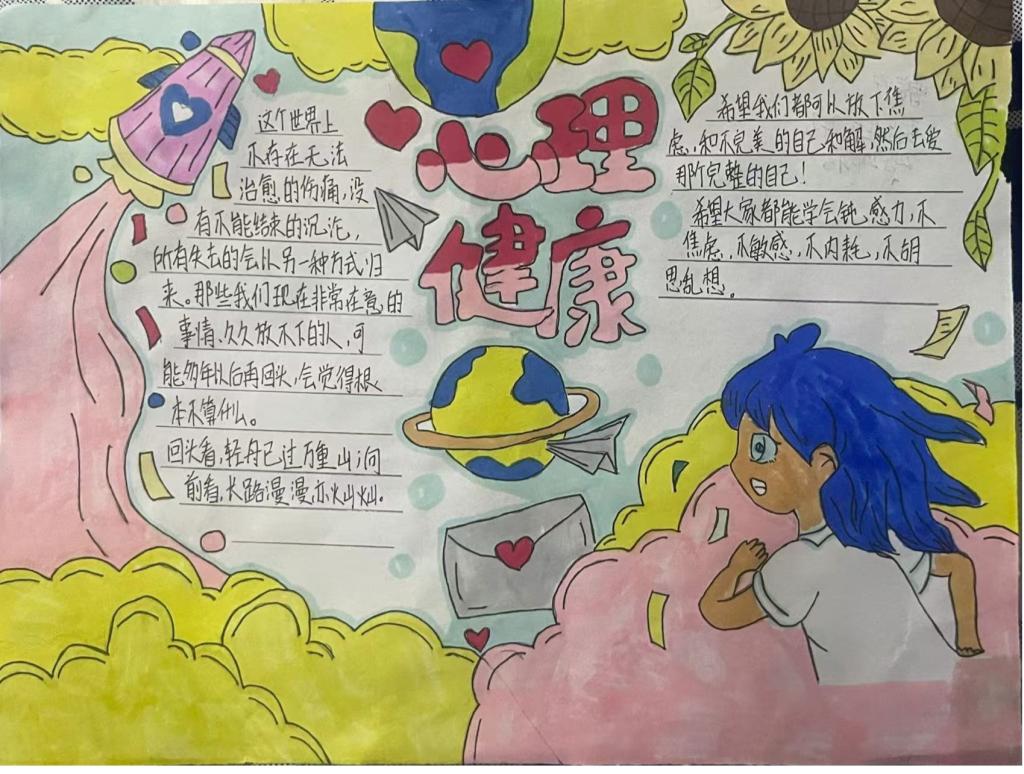 心理
健康
这个世界上
不存在无法
治愈的伤痛，没
有不能结束的沉沦，
所有失去的会以另一种方式归
来。那些我们现在非常在意的
事情、久久放不下的人，可
能多年以后再回头，会觉得根
本不算什么。
回头看，轻舟已过万重山；向
前看，长路漫漫亦灿灿。
希望我们都可以放下焦
虑，和不完美的自己和解，然后去爱
那个完整的自己！
希望大家都能学会钝感力，不
焦虑，不敏感，不内耗，不胡
思乱想。